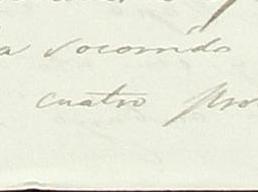 a socorrido
cuatro pro